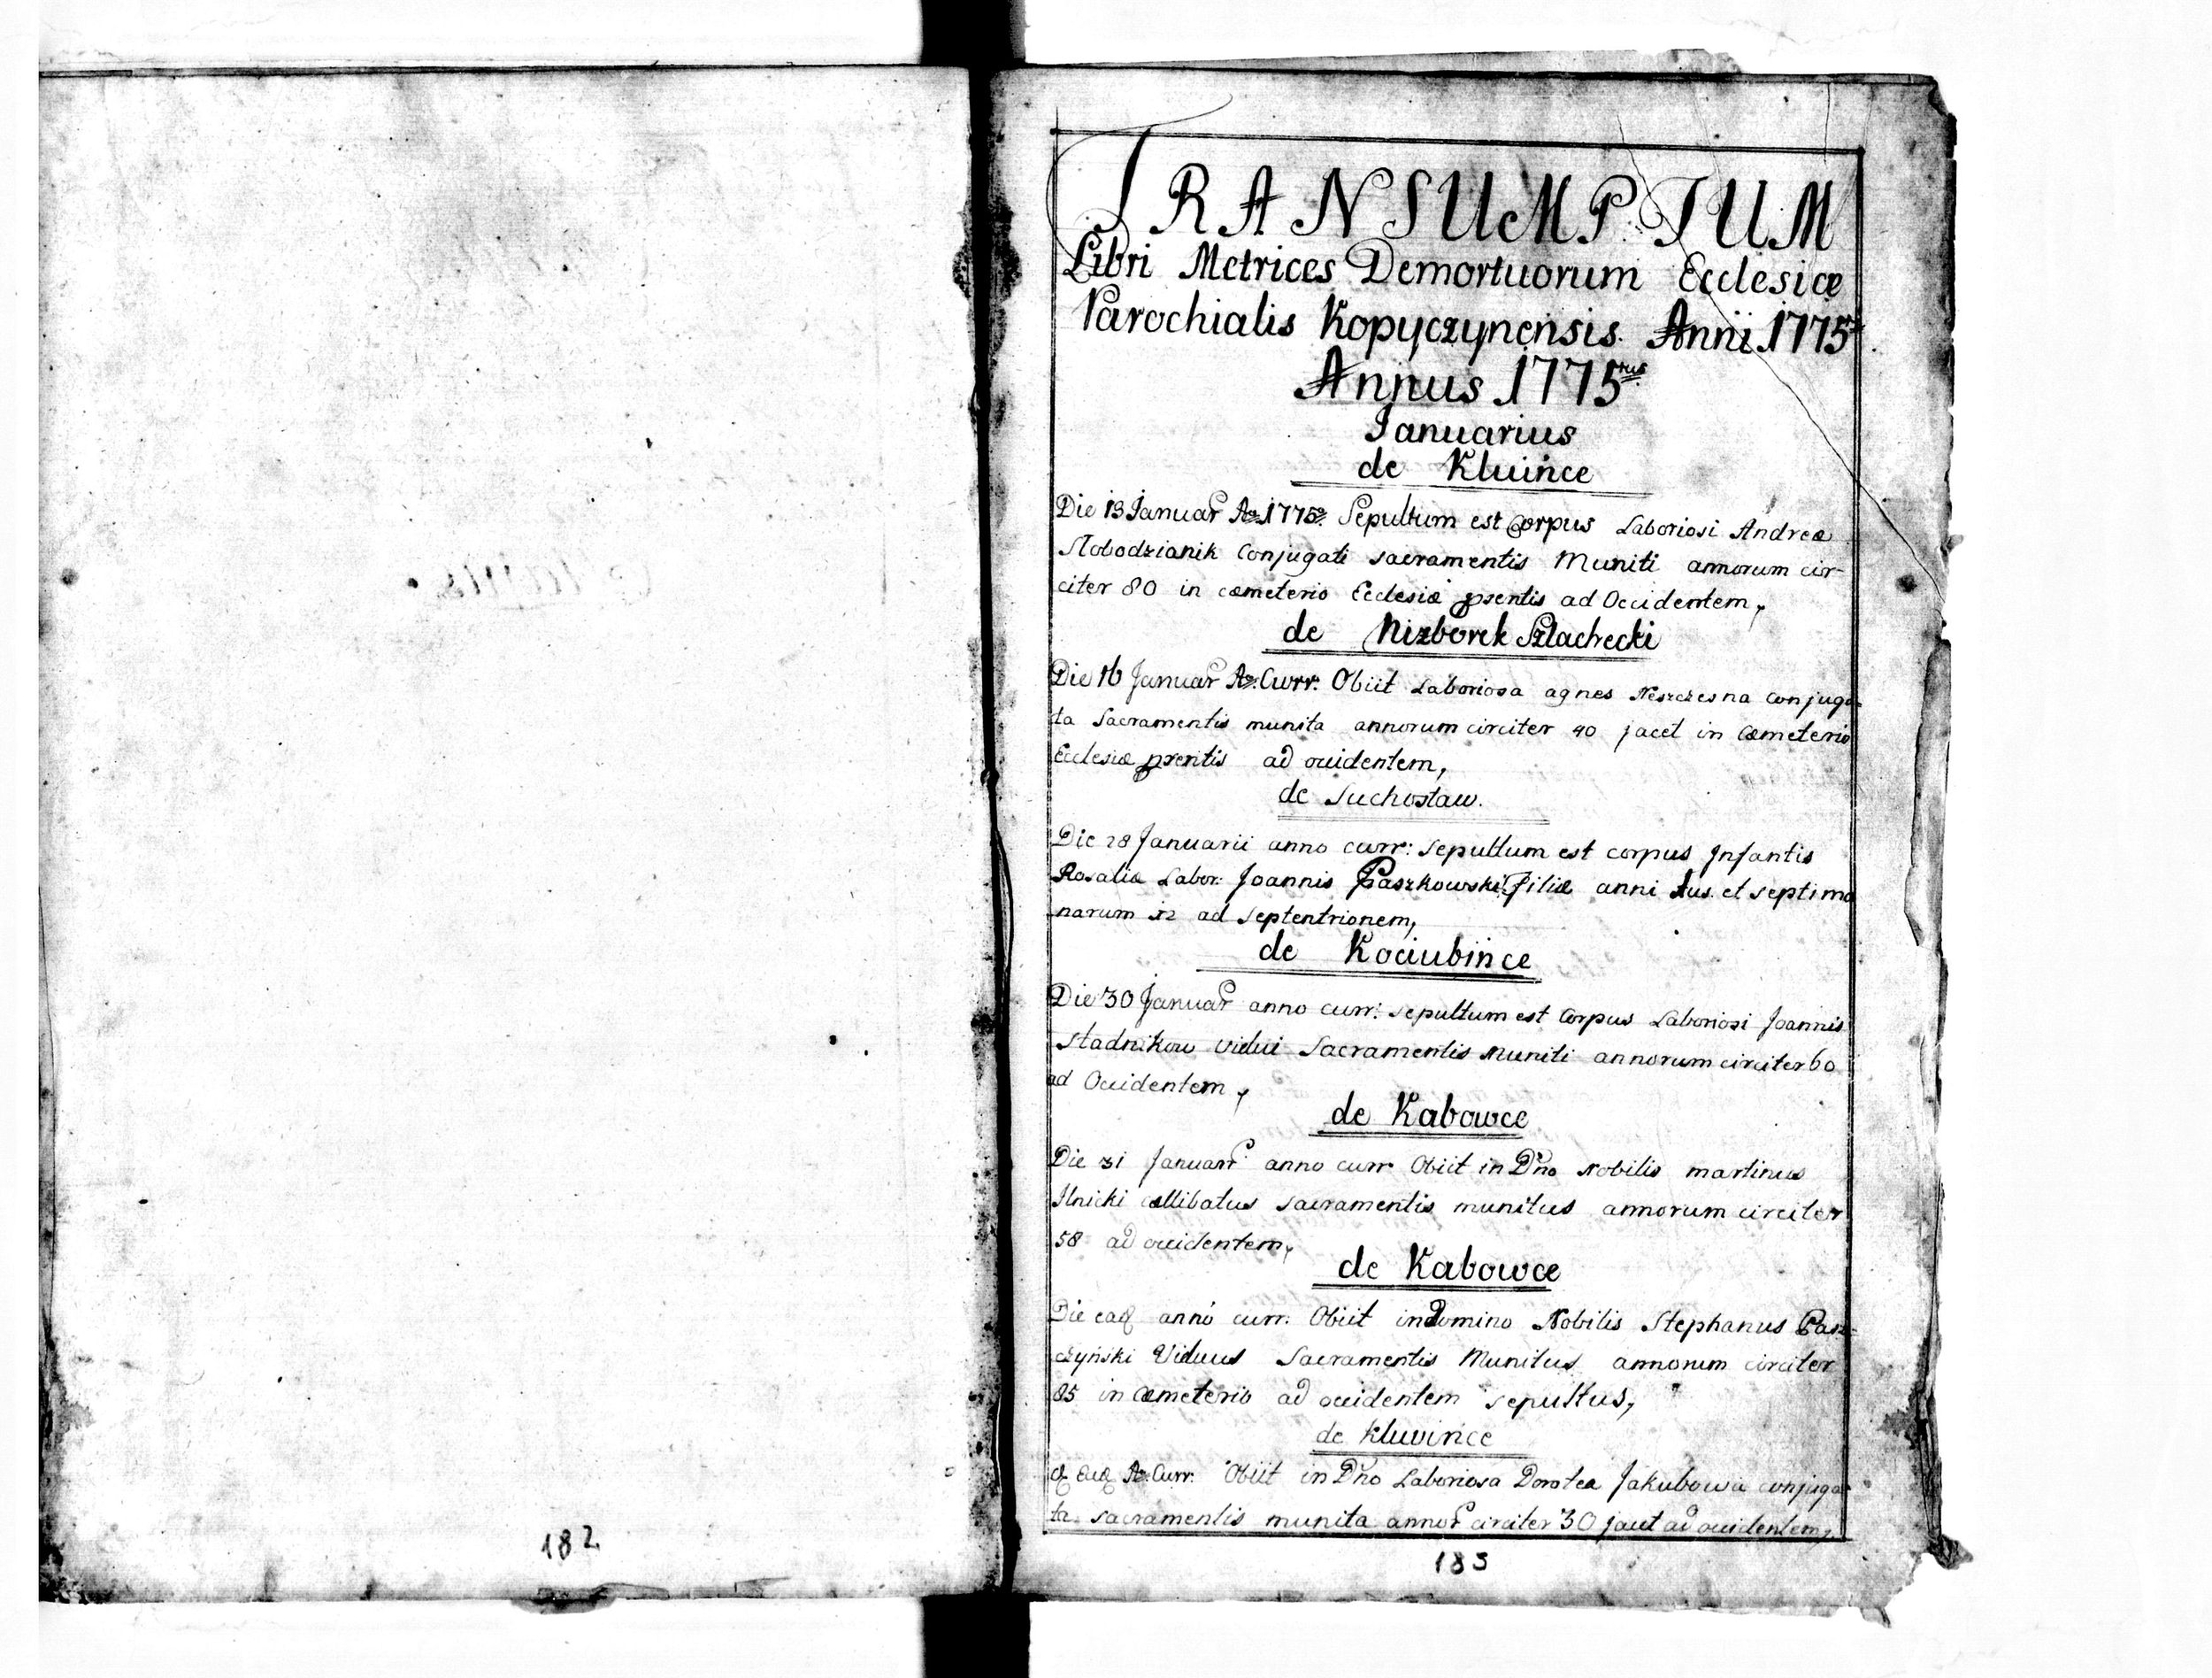 TRANSUMPTUM
Libri Metrices Demortuorum Ecclesiæ
Parochialis Kopyczynensis. Anni 1775
Annus 1775tus
Januarius
de Kluińce
Die 13 Januar Ao 1775o. Sepultum est Corpus Laboriosi Andreæ
Slobodzianik Conjugati sacramentis Muniti annorum cir-
citer 80 in cæmeterio Ecclesiæ pxentis ad Occidentem,
de Nizborek Szlachecki
Die 16 Januar Ao. Curr. Obiit Laboriosa agnes Neszczesna conjuga-
ta Sacramentis munita annorum circiter 40 jacet in Cæmeterio
Ecclesiæ pxentis ad occidentem,
de Suchostaw.
Die 28 Januarii anno curr: sepultum est corpus Infantis
Rosaliæ Labor: Joannis Paszkowski filiæ anni 1us. et septima
narum 12 ad septentrionem,
de Kociubińce
Die 30 Januar anno curr: sepultum est Corpus Laboriosi Joannis
Stadnikow vidui Sacramentis Muniti annorum circiter 60
ad Occidentem,
de Kabowce
Die 31 Januarr anno curr Obiit in Dno Nobilis martinus
Ilnicki cællibatus sacramentis munitus annorum circiter
58 ad occidentem,
de Kabowce
Die eadq anno curr. Obiit in Domino Nobilis Stephanus Pasz-
czyński Viduus Sacramentis Munitus annorum circiter
85 in Cæmeterio ad occidentem sepultus,
de Kluvińce
Ao. Curr. Obiit in Dno Laboriosa Dorotea Jakubowa conjuga
ta sacramentis munita annor circiter 30 jacet ad occidentem,
182
183